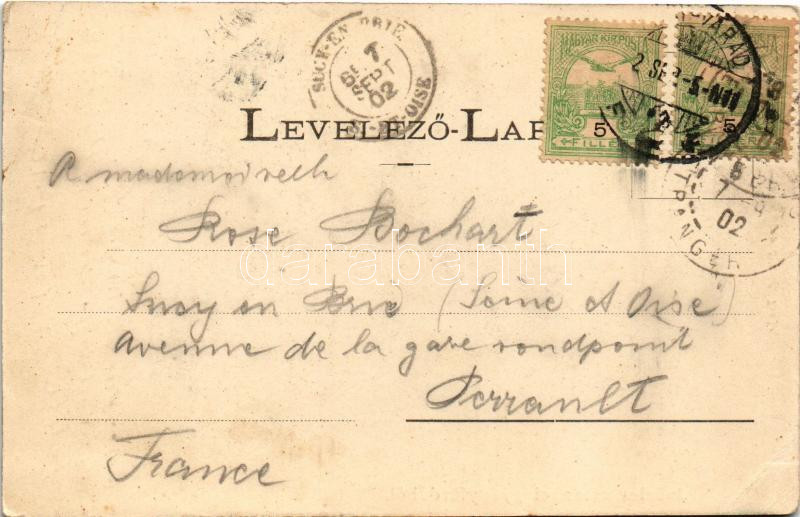 LEVELEZŐ-LAP
SUCY-EN-BRIE
7
SEPT
02
MAGYAR KIR. POSTA
5
FILLÉR
5
2 SEP
ETRANGER
7
02
A madomoirelle
Rose Bochart
Sucy en Brie (Seine et Oise)
Avenue de la gare rondpoint
Perrault
France
darabanth